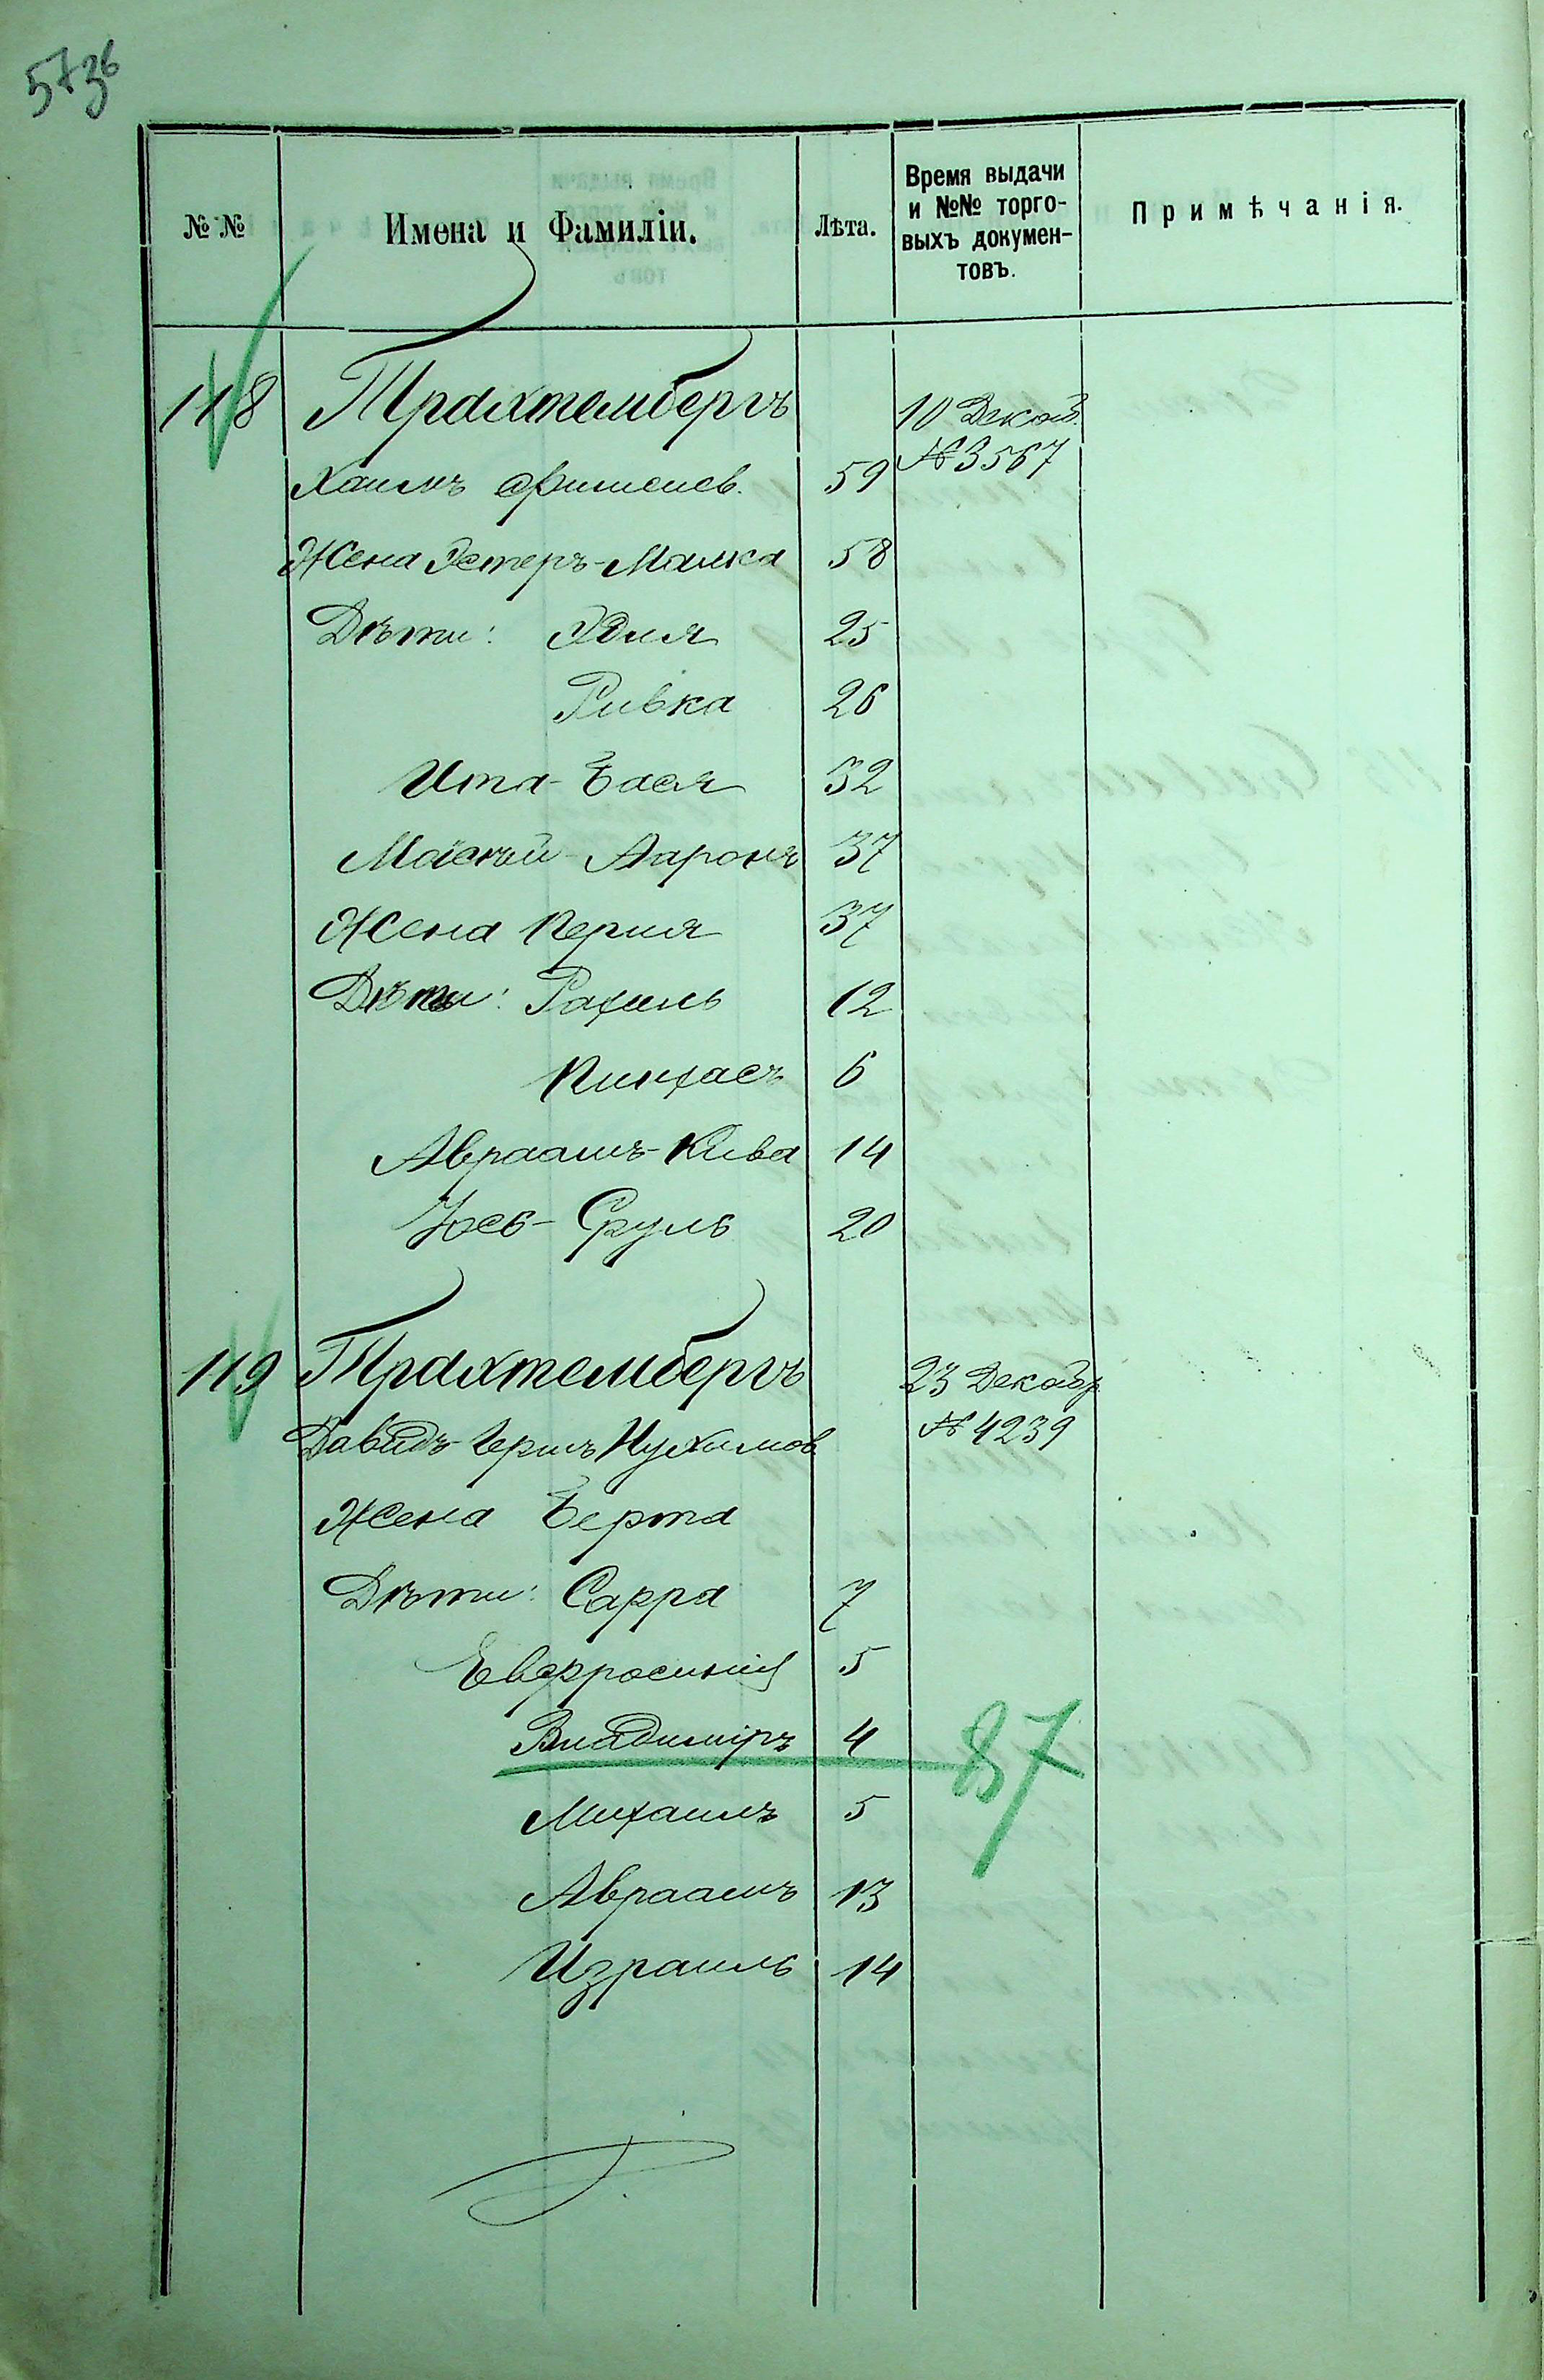 573б
№ №
Имена и Фамиліи.
Лѣта.
Время выдачи
и №№ торго-
выхъ докумен-
товъ.
Примѣчанія.
118 Трахтембергъ 10 Декаб.
№ 3567
Хаимъ Фишелев. 59
Жена Эстеръ-Малка 58
Дѣти: Эдия 25
Ривка 26
Ита-Бася 32
Мосѣй-Ааронъ 37
Жена Перля 37
Дѣти: Рахиль 12
Пинхасъ 6
Авраамъ-Кива 14
Іосъ-Сруль 20
119 Трахтембергъ 23 Декабр.
№ 4239
Давидъ-Гершъ Нухимов
Жена Берта
Дѣти: Сарра 7
Евфросинія 5
Владиміръ 4
87
Михаилъ 5
Авраамъ 13
Израиль 14